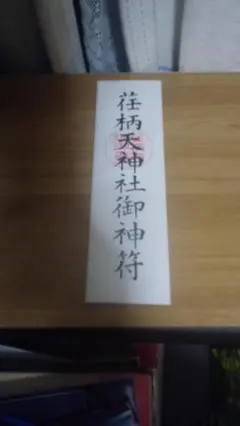 荏柄天神社御神符